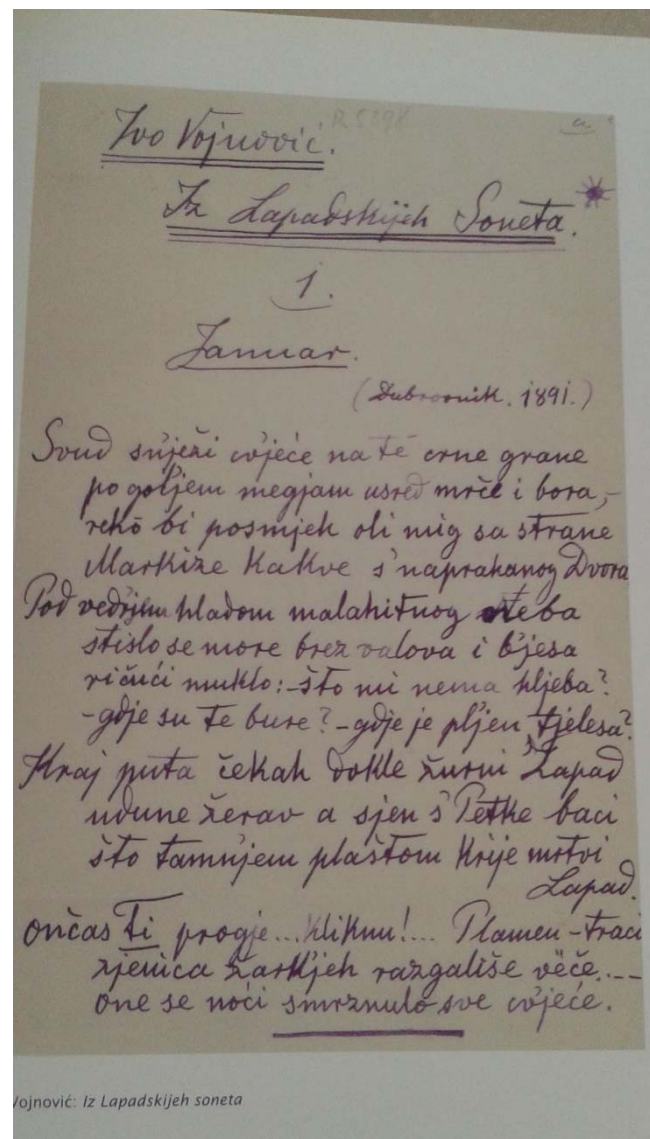 R 5398
a.
Ivo Vojnović.
Iz Lapadskijeh Soneta.
1.
Januar.
(Dubrovnik. 1891.)
Svud snježi cvjeće na te crne grane
po goljem megjam usred mrče i bora,-
rekō bi posmjeh oli mig sa strane
Markize kakve s' naprahanog Dvora
Pod vedrjem hladom malahitnog Neba
stislo se more brez valova i b'jesa
ričući muklo:-što mi nema hljeba?
-gdje su te bure?-gdje je pljen tjelesa?
Kraj puta čekah dokle žurni Zapad
udune žerav a sjen s' Petke baci
što tamnjem plaštom krije mrtvi
Lapad.
Ončas Ti progje...kliknu!... Plamen-traci
zjenica žarkjeh razgališe veče....
one se noći smrznulo sve cvjeće.
Vojnović: Iz Lapadskijeh soneta